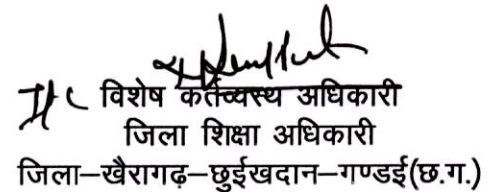 विशेष कर्तव्यस्थ अधिकारी
जिला शिक्षा अधिकारी
जिला–खैरागढ़–छुईखदान–गण्डई(छ.ग.)